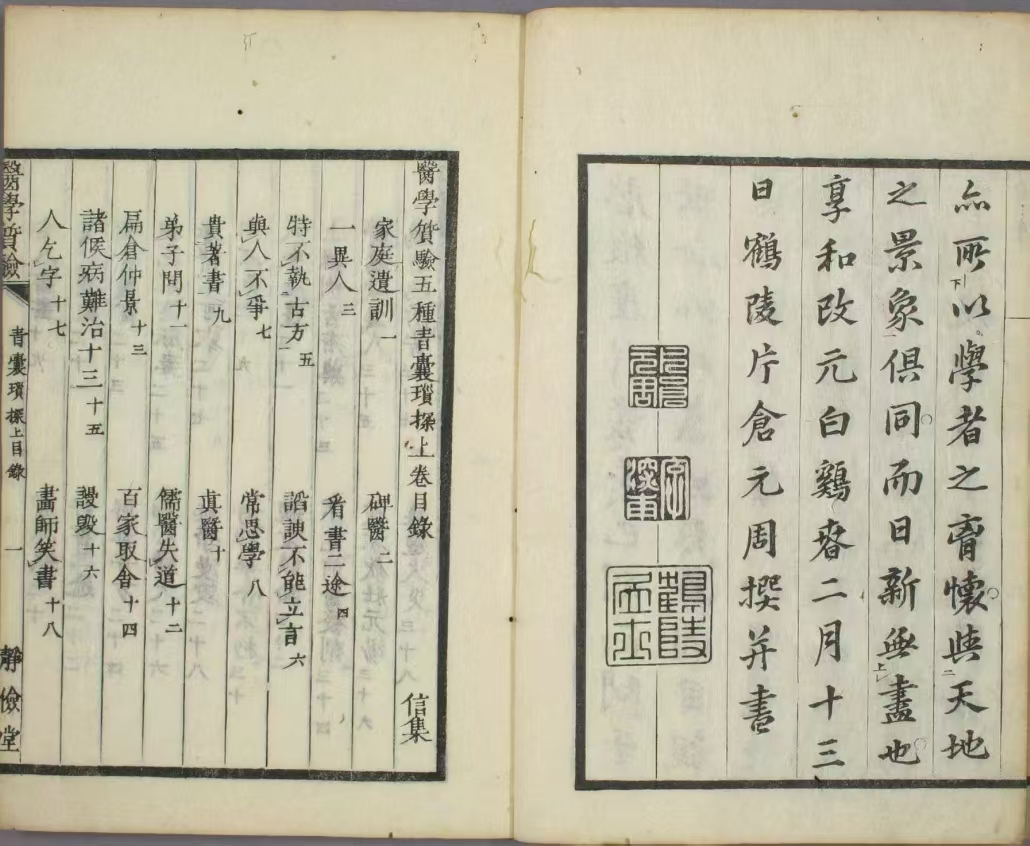 亦所以學者之胷懷與天地
之景象俱同而日新無盡也
享和改元白鷄春二月十三
日鶴陵片倉元周撰并書
字深甫
鶴陵
醫學質驗五種青囊瑣探上卷目錄 信集
家庭遺訓一 碑醫二
一異人三 看書二途四
特不執古方五 諂諛不能立言六
與人不爭七 常思學八
貴著書九 真醫十
弟子問十一 儒醫失道十二
扁倉仲景十三 百家取舍十四
諸候病難治十三十五 謾毀十六
人乞字十七 畫師笑書十八
醫學質驗 青囊瑣探上目錄 一 靜儉堂